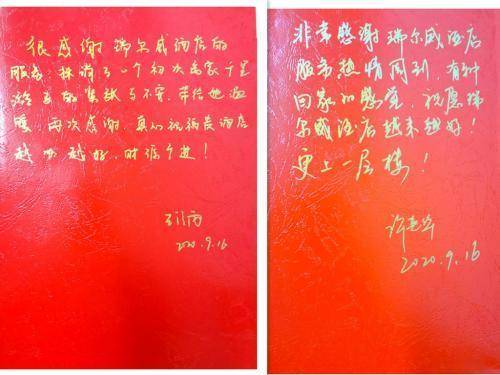 很感谢瑞尔威酒店的
服务，抹消了一个初次离家千里
游子的紧张与不安，带给他温
暖，再次感谢，真心祝福贵酒店
越办越好，财源广进！
2020.9.16
非常感谢瑞尔威酒店
服务热情周到，有种
回家的感觉，祝愿瑞
尔威酒店越来越好！
更上一层楼！
2020.9.16